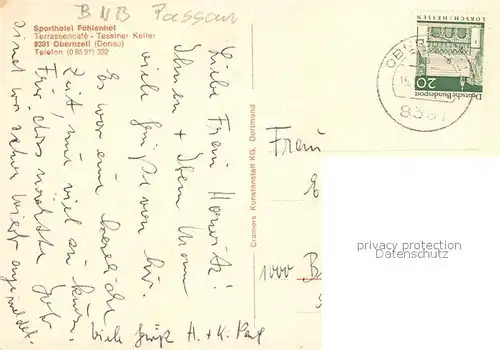 BNB Passau
Sporthotel Fohlenhof
Terrassencafé - Tessiner Keller
8391 Obernzell (Donau)
Telefon (0 85 91) 332
Liebe Frau
Ihnen + Ihrem Mann
viele Grüße von hier.
Es war eine herrliche
Zeit, nur viel zu kurz.
Für das nächste Jahr
sind wir schon wieder angemeldet.
Viele Grüße H. + K.
Cramers Kunstanstalt KG, Dortmund
LORSCH/HESSEN
20
Deutsche Bundespost
OBER
8391
Frau
E
1000 B
privacy protection
Datenschutz